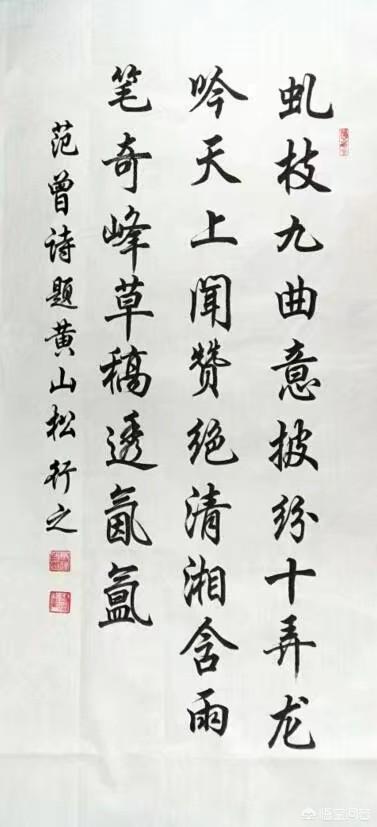 虬枝九曲意披纷十弄龙
吟天上闻赞绝清湘含雨
笔奇峰草稿透氤氲
范曾诗题黄山松 行之
悟空问答